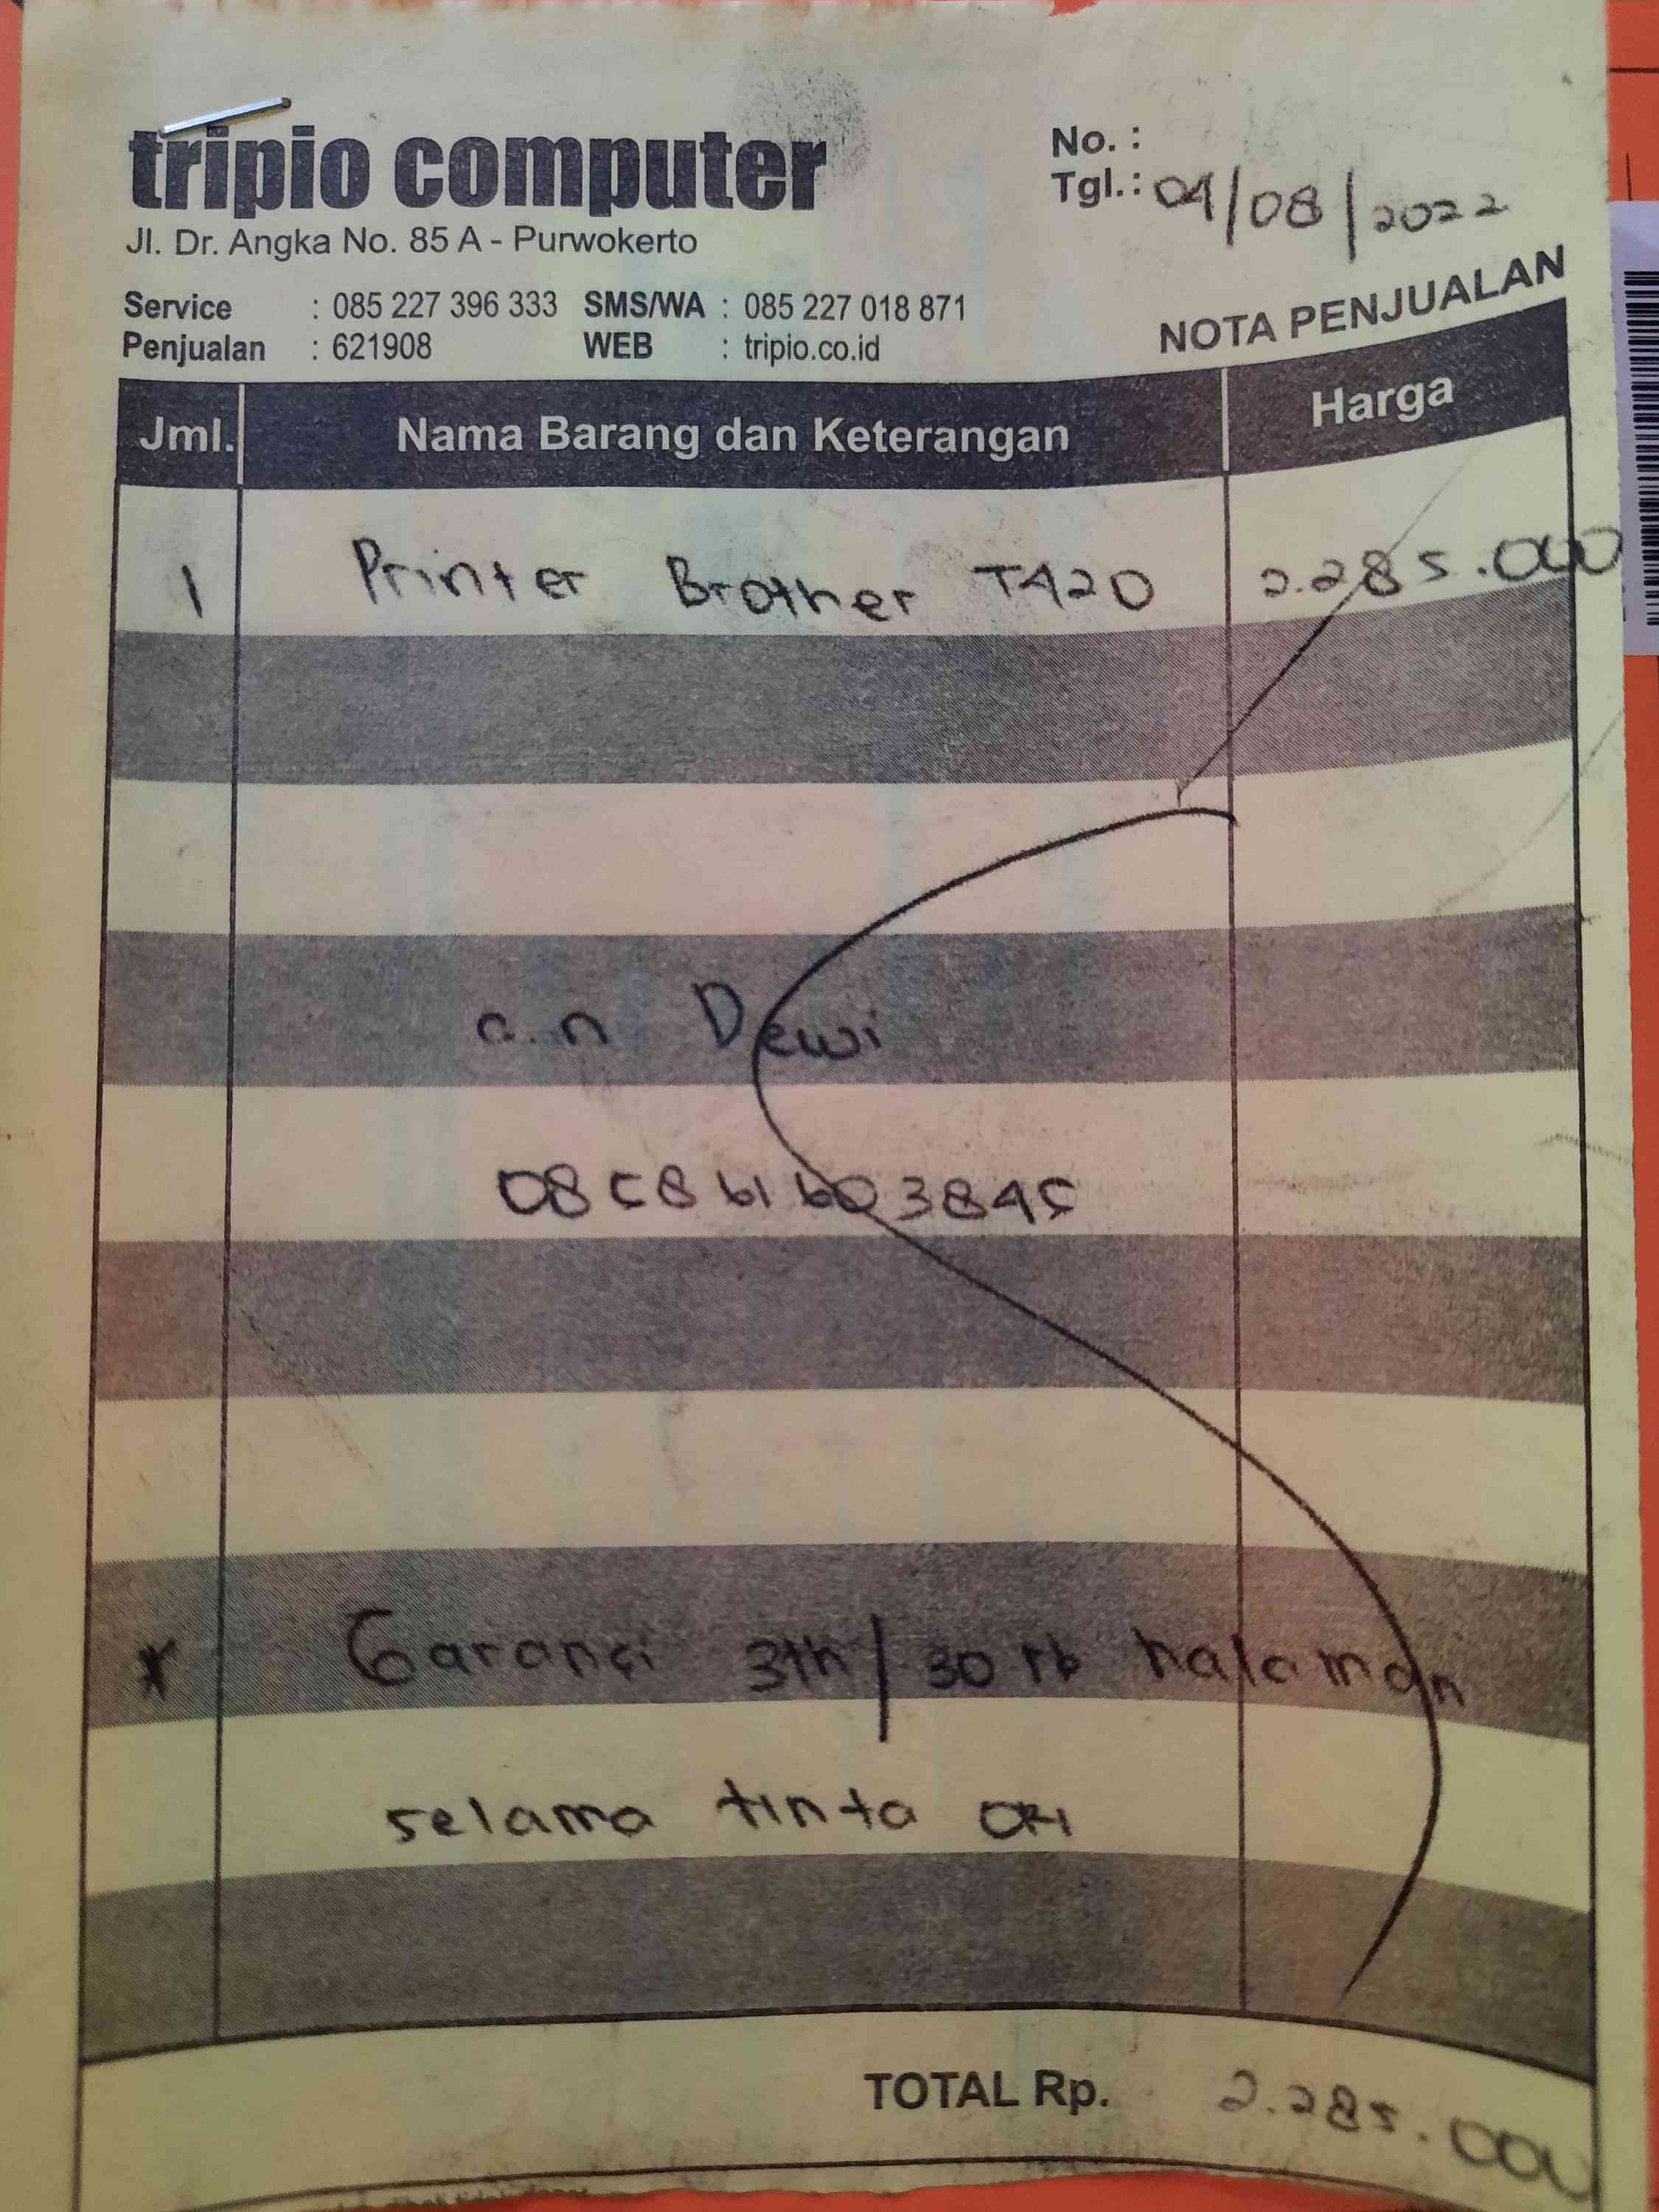 tripio computer
Jl. Dr. Angka No. 85 A - Purwokerto
No. :
Tgl.: 04/08/2022
Service : 085 227 396 333 SMS/WA : 085 227 018 871
Penjualan : 621908 WEB : tripio.co.id
NOTA PENJUALAN
Jml. Nama Barang dan Keterangan Harga
1 Printer Brother T420 2.285.000
a.n Dewi
085861603845
* Garansi 3th/30 rb halaman
selama tinta ORI
TOTAL Rp. 2.285.000